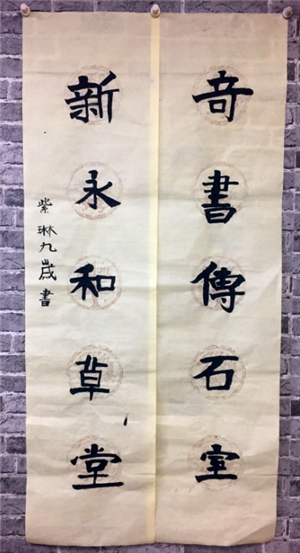 奇書傳石室
新永和草堂
紫琳九歲書